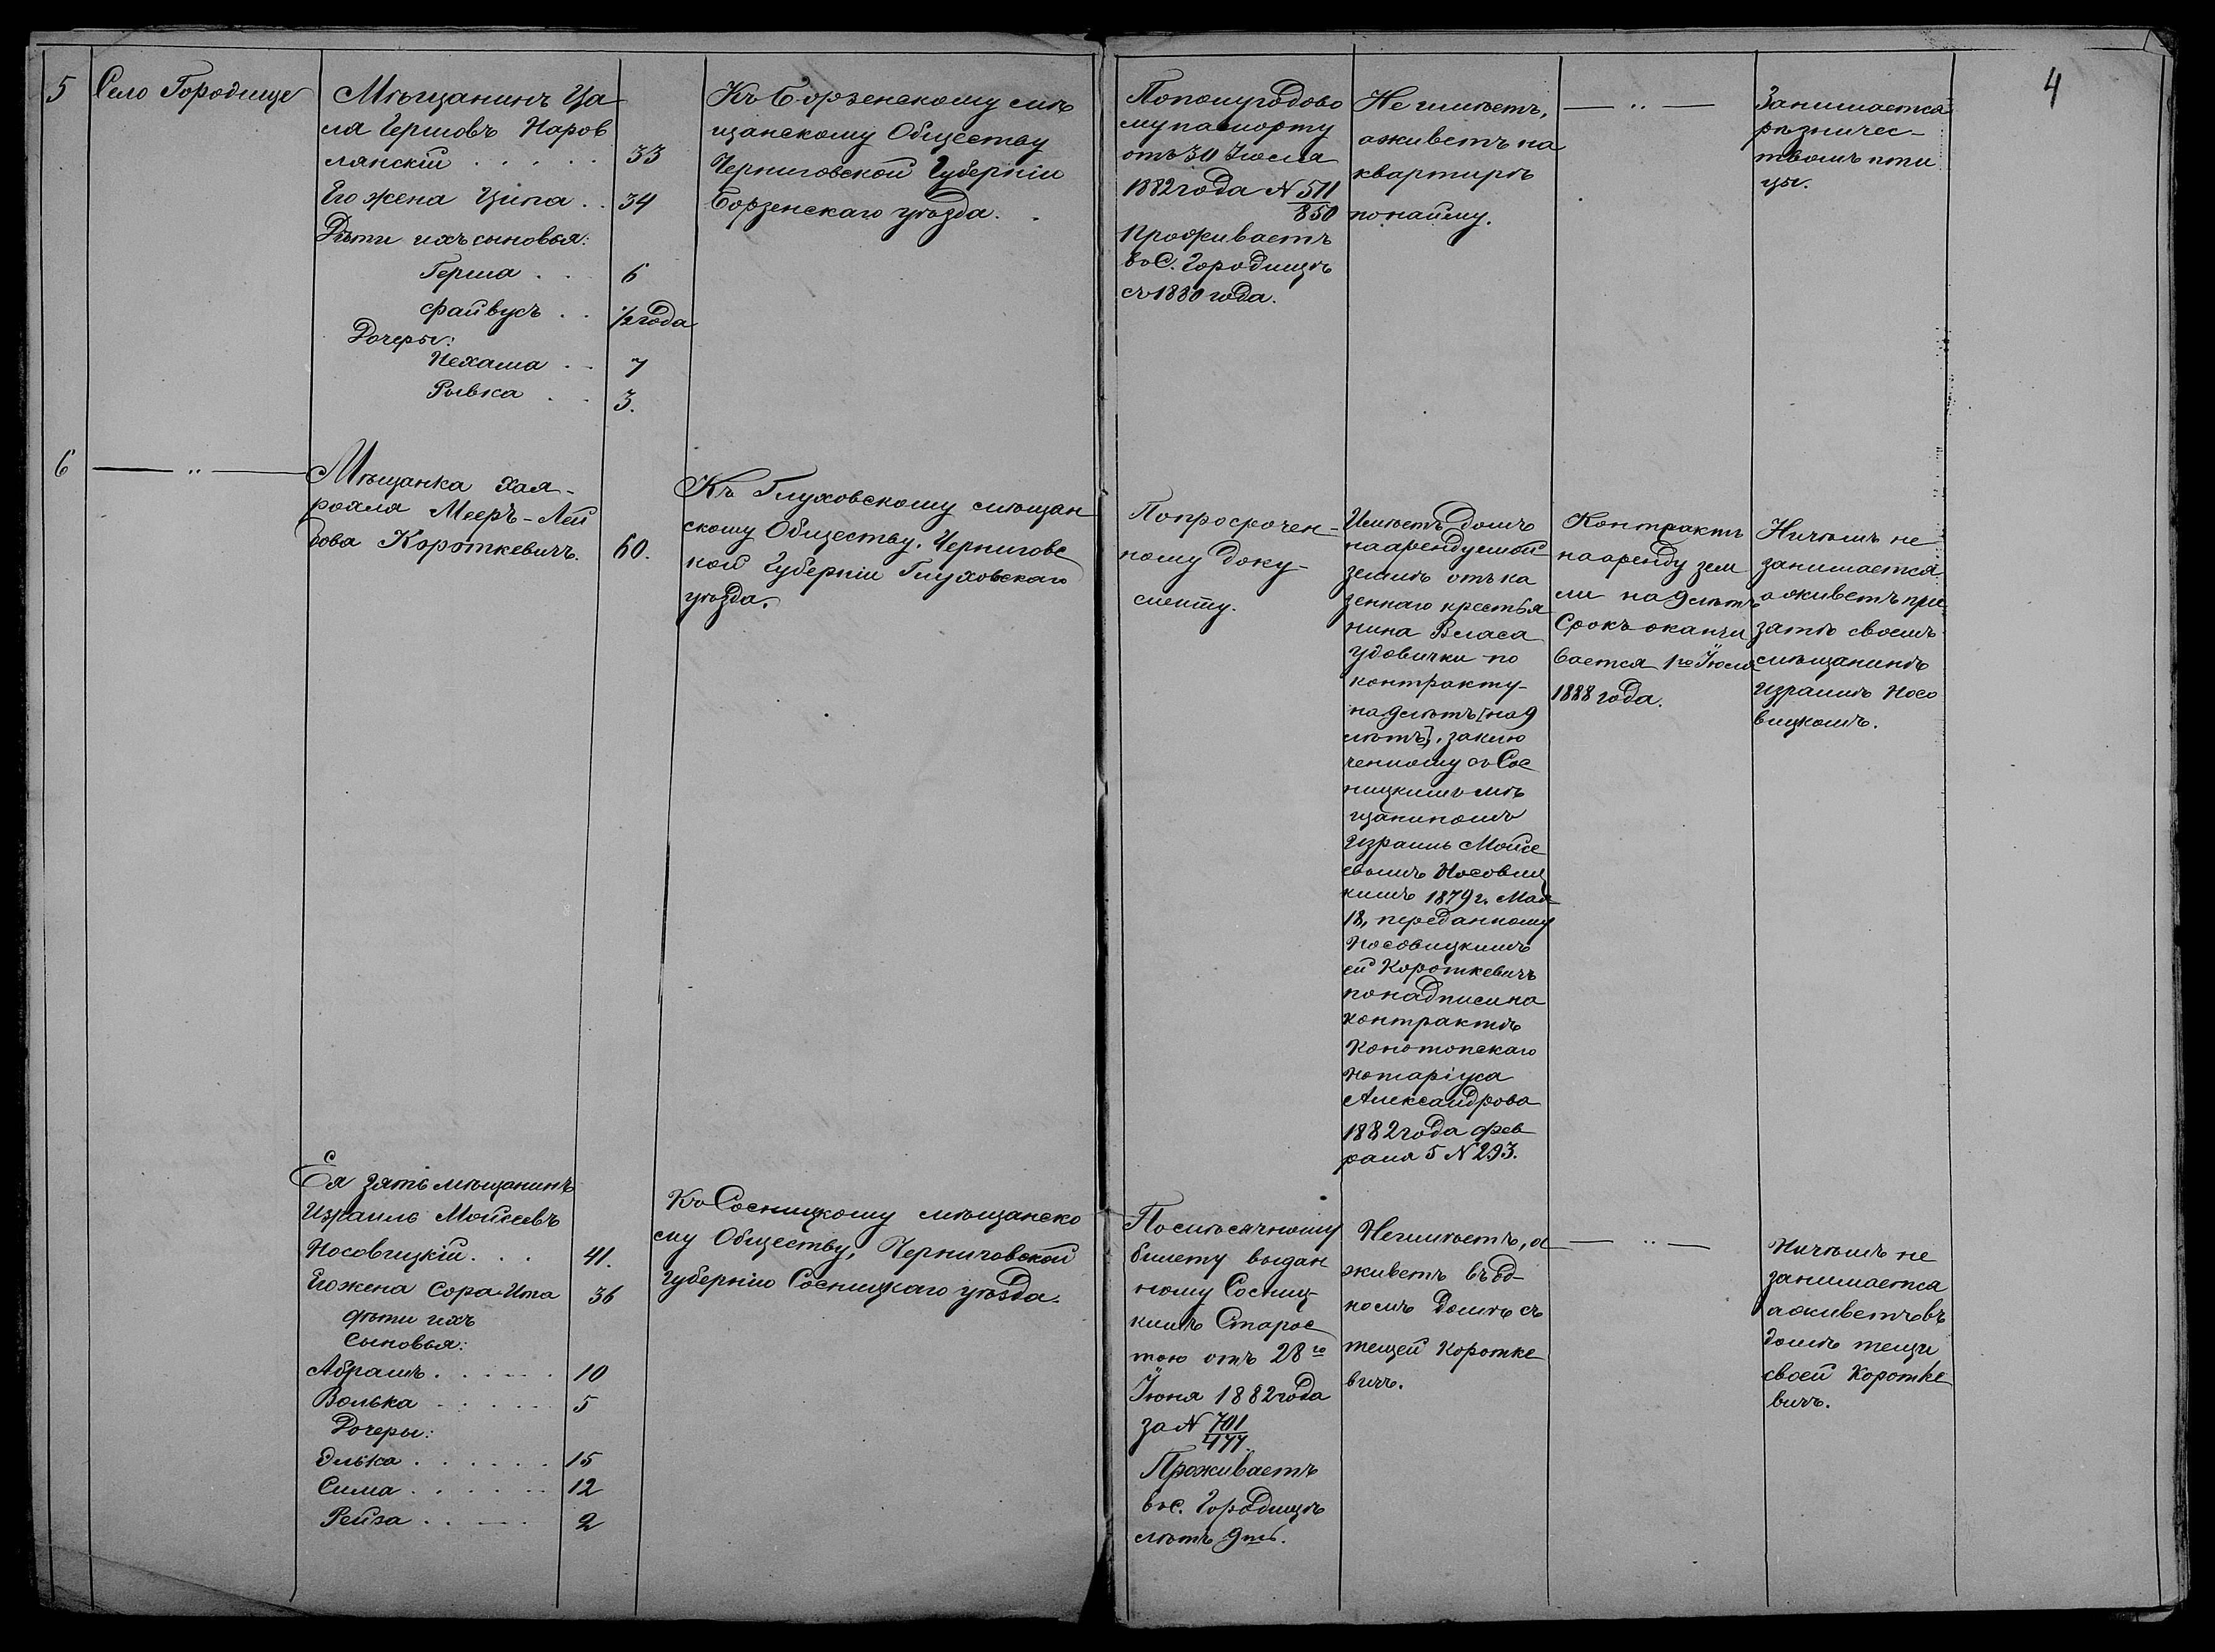 4
5
Село Городище
Мѣщанинъ Ца
ля Гершовъ Наров
лянскій . . . . . 33
Его жена Ципа . . 34
Дѣти ихъ сыновья:
Герша . . . 6
Файвусъ . . 1/2 года
Дочеры:
Нехама . . 7
Рывка . . 3.
Къ Борзенскому мѣ
щанскому Обществу
Черниговской Губерніи
Борзенскаго уѣзда.
По полугодово
му паспорту
отъ 30 Іюля
1882 года N 511
850
Проживаетъ
въ С. Городищѣ
съ 1880 года.
Не имѣетъ,
а живетъ на
квартирѣ
по найму.
— " —
Занимается
рѣзничес-
твомъ пти
цы.
6
— " —
Мѣщанка Хая-
рохля Мееръ-Лей
бова Короткевичъ. 60.
Къ Глуховскому мѣщан
скому Обществу, Черниговс
кой Губерніи Глуховскаго
уѣзда.
По просрочен-
ному доку-
менту.
Имѣетъ домъ
на арендуемой
землѣ отъ ка
зеннаго крестья
нина Власа
Удовички по
контракту-
на 9 лѣтъ [на 9
лѣтъ], заклю
ченному съ Сос
ницкимъ мѣ
щаниномъ
Израиль Мойсе
евымъ Носовиц
кимъ 1879 г. Мая
18, переданному
Носовицкимъ
ей Короткевичъ
по надписи на
контрактѣ
Конотопскаго
Нотаріуса
Александрова
1882 года фев
раля 5 N 293.
Контрактъ
на аренду зем
ли на 9 лѣтъ
Срокъ оканчи
вается 1го Іюля
1888 года.
Ничѣмъ не
занимается
а живетъ при
зятѣ своемъ
мѣщанинѣ
Израилѣ Носо
вицкомъ.
Ея зять мѣщанинъ
Израиль Мойсеевъ
Носовицкій . . . 41.
Его жена Сора-Ита 36
Дѣти ихъ
Сыновья:
Абрамъ . . . . . 10
Волька . . . . . 5
Дочеры:
Элька . . . . . . 15
Сима . . . . . . 12
Рейза . . . . . 2
Къ Сосницкому мѣщанско
му Обществу, Черниговской
Губерніи Сосницкаго уѣзда.
По мѣсячному
билету выдан
ному Сосниц-
кимъ Старос
тою отъ 28го
Іюня 1882 года
за N 701
477.
Проживаетъ
въ С. Городищѣ
лѣтъ 9ть.
Не имѣетъ, а
живетъ въ од-
номъ домѣ съ
тещей Коротке
вичъ.
— " —
Ничѣмъ не
занимается
а живетъ въ
домѣ тещи
своей Коротке
вичъ.